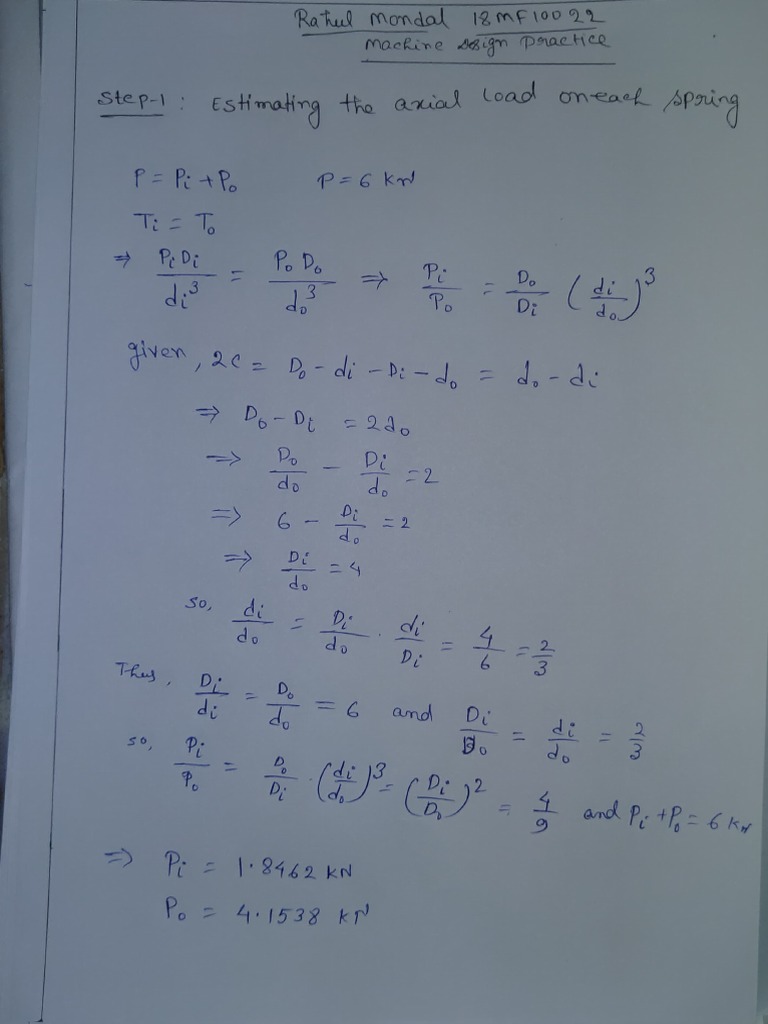 Rahul Mondal 18MF10022
Machine Design Practice
Step-1 : Estimating the axial load on each spring
P = Pi + Po P = 6 kN
Ti = To
⇒ PiDi/di³ = PoDo/do³ ⇒ Pi/Po = Do/Di (di/do)³
given, 2c = Do - di - Di - do = do - di
⇒ Do - Di = 2do
⇒ Do/do - Di/do = 2
⇒ 6 - Di/do = 2
⇒ Di/do = 4
so, di/do = Di/do . di/Di = 4/6 = 2/3
Thus, Di/di = Do/do = 6 and Di/Do = di/do = 2/3
so, Pi/Po = Do/Di . (di/do)³ = (Di/Do)² = 4/9 and Pi + Po = 6 kN
⇒ Pi = 1.8462 kN
Po = 4.1538 kN